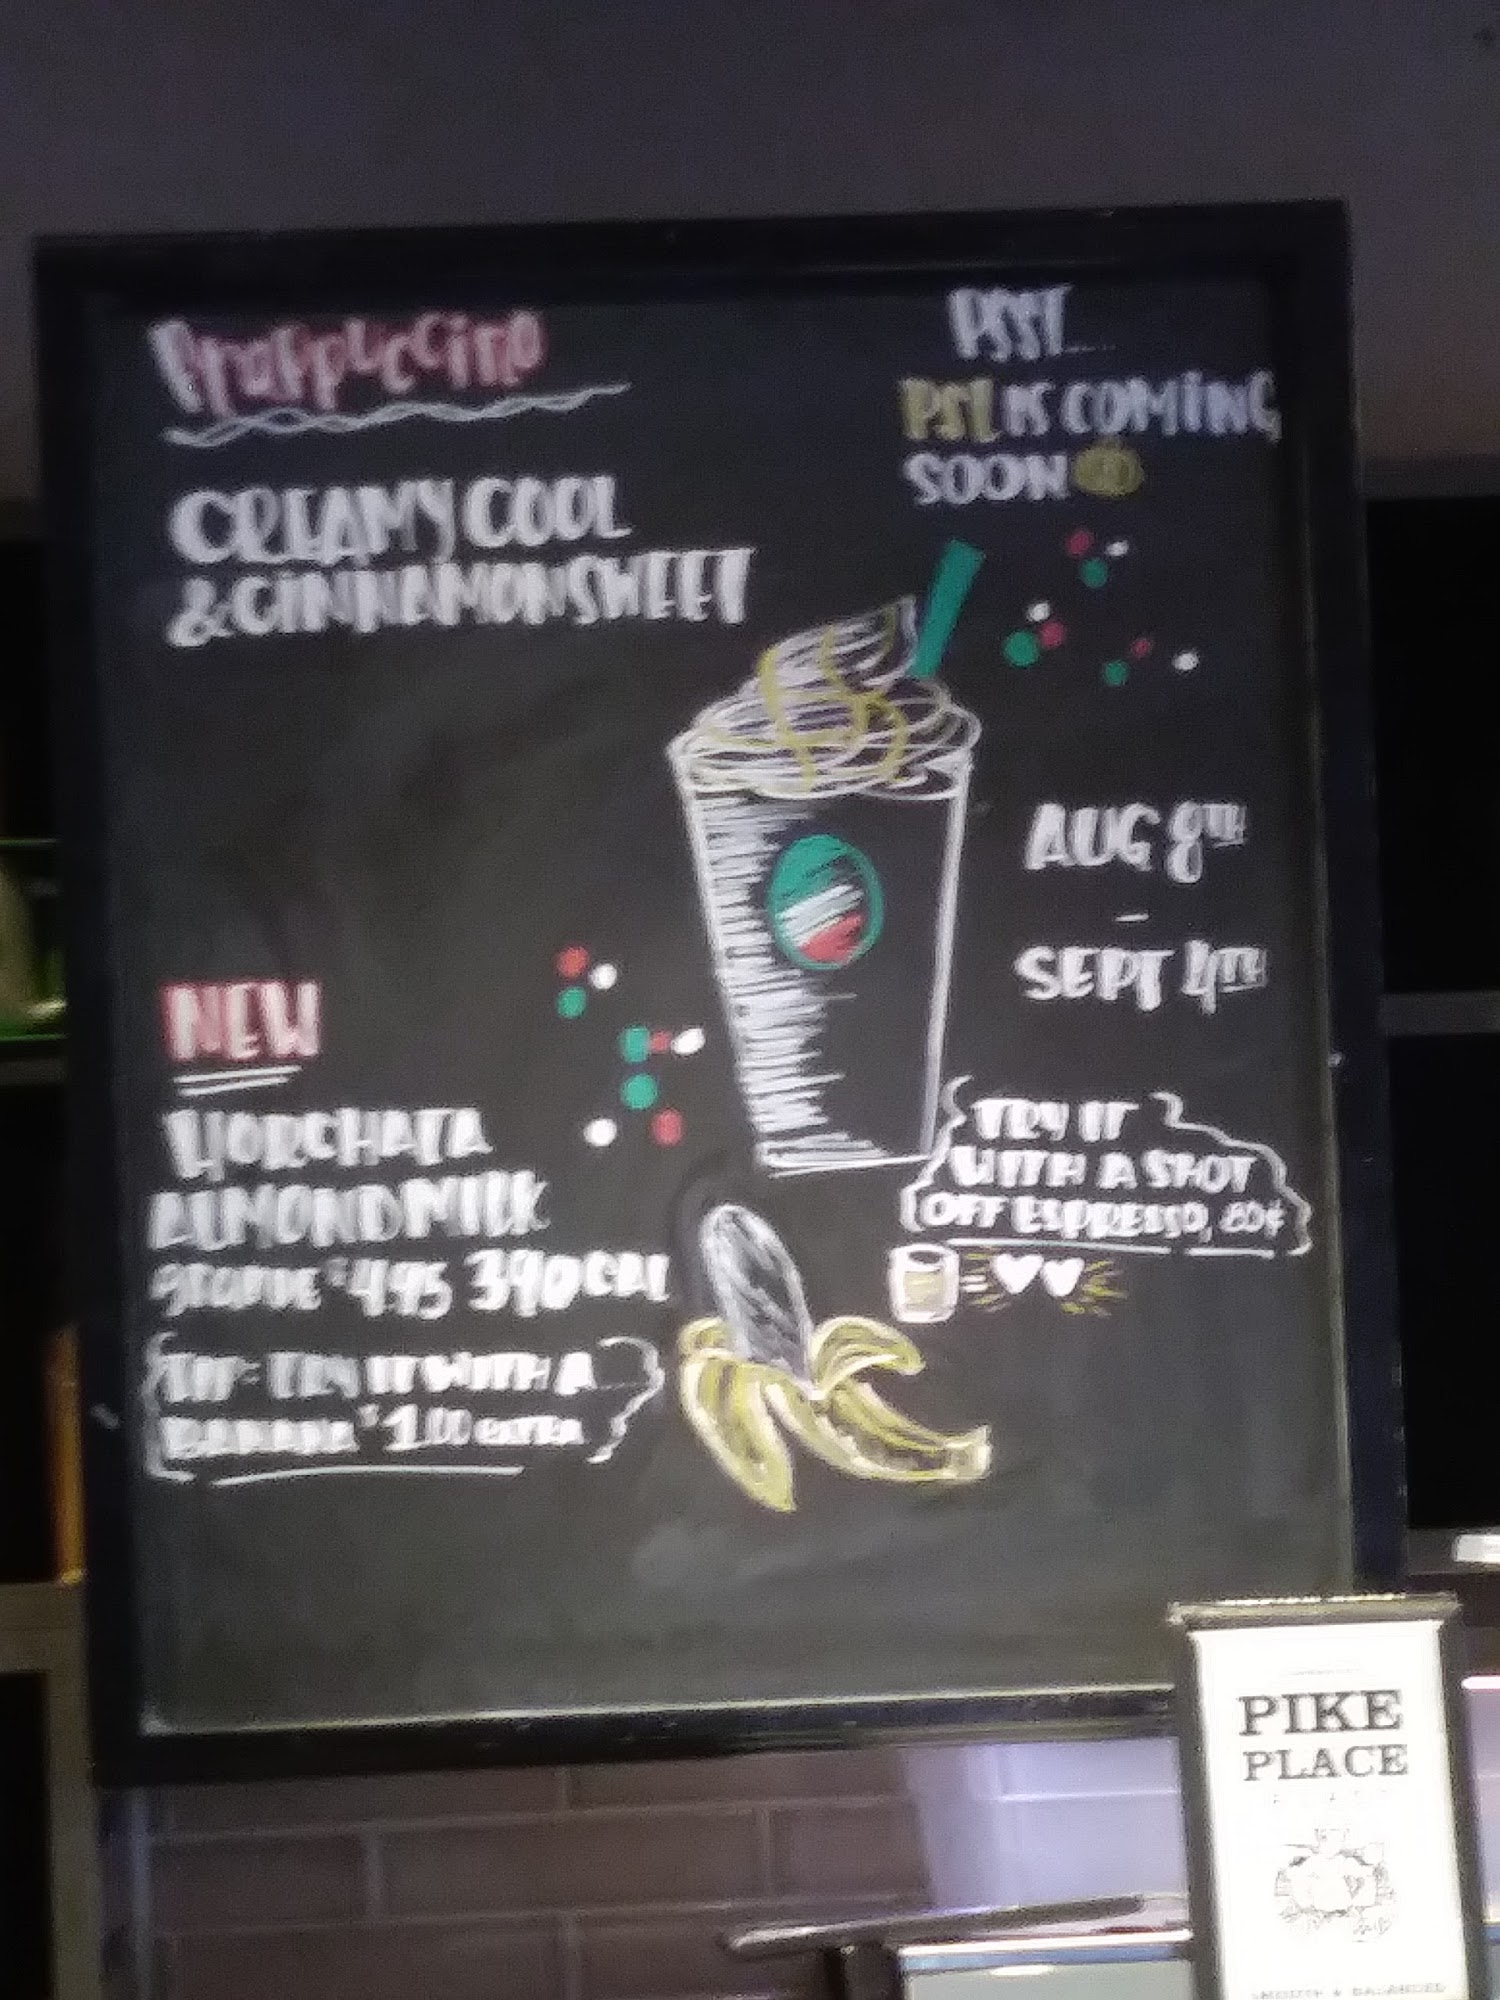 Frappuccino
CREAMY COOL
& CINNAMON SWEET
PSST....
PSL IS COMING
SOON
AUG 8TH
-
SEPT 4TH
NEW
HORCHATA
ALMONDMILK
GRANDE $4.95 390 CAL
TIP: TRY IT WITH A
BANANA $1.00 EXTRA
TRY IT
WITH A SHOT
OFF ESPRESSO, 80¢
=
PIKE
PLACE
ROAST
SMOOTH & BALANCED